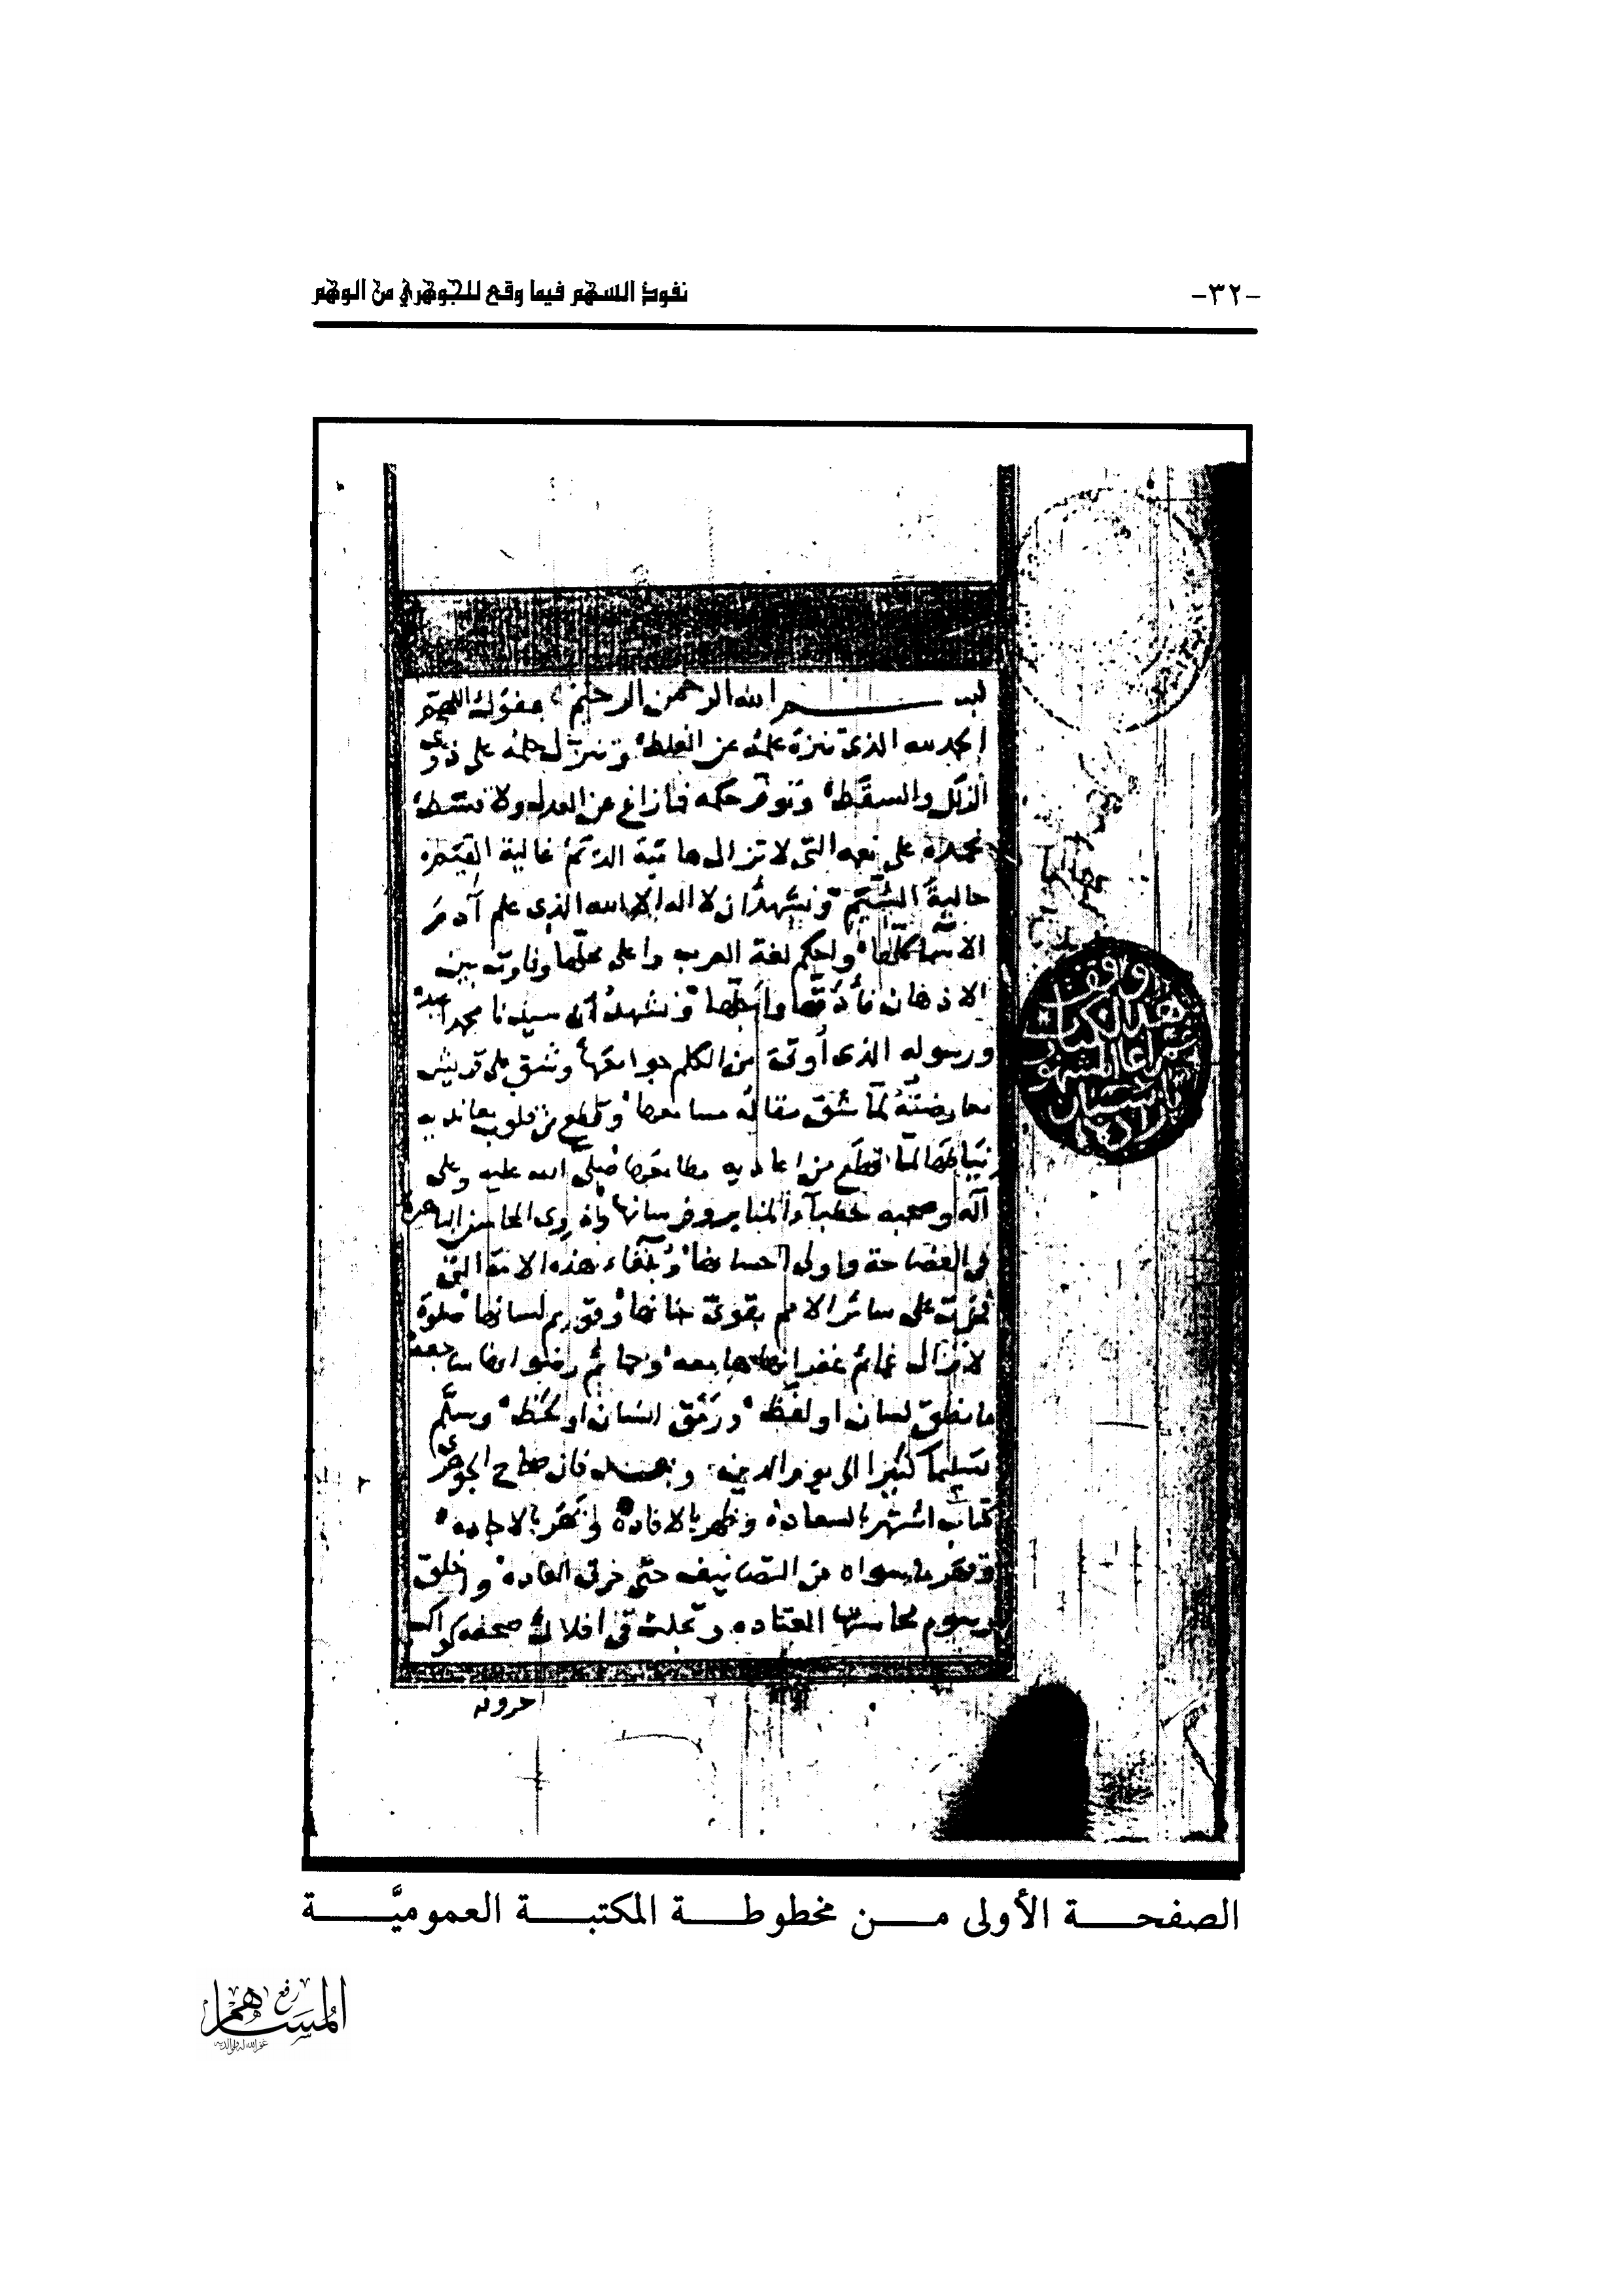 -٣٢-
نفوذ السهم فيما وقع للجوهري من الوهم
بسم الله الرحمن الرحيم
الحمد لله الذي تنزه علمه عن الغلط وتنزل حلمه على ذوي
الزلل والسقط وتوفر حكمه فما زاغ عن العدل ولا قسط
نحمده على نعمه التي لا تزال هامية الديم غالية القيم
حالية الشيم ونشهد ان لا اله الا الله الذي علم آدم
الاسماء كلها واحكم لغة العرب واعلى محلها وفاوت بين
الاذهان فأدقها وأجلها ونشهد أن سيدنا محمدا عبده
ورسوله الذي أوتي من الكلم جوامعها وشق على قريش
معارضته لما شق مقاله مسامعها وقطع من قلوب معانديه
نياطها لما قطع من اعاديه مطامعها صلى الله عليه وعلى
آله وصحبه خطباء المنابر وفرسانها وذوي المحاسن الباهرة
في الفصاحة واولي احسانها وبلغاء هذه الامة التي
على سائر الامم بقوى جنانها وقويم لسانها صلوة
لا تزال غمائم غفرانها هامعه وحمائم رضوانها ساجعة
ما نطق لسان او لفظ ورمق انسان او لحظ وسلم
تسليما كثيرا الى يوم الدين وبعد فان صحاح الجوهري
كتاب اشتهر بالسعادة وظهر بالافادة وانحر بالاجاده
ما سواه من التصانيف حتى خرق العاده واخلق
رسوم محاسنها المعتاده وتجلت في افلاك صحفه كواكب
حروفه
وقف
هذا الكتاب
الصفحة الأولى من مخطوطة المكتبة العموميَّة
رفع
المساهم
غفر الله له ولوالديه